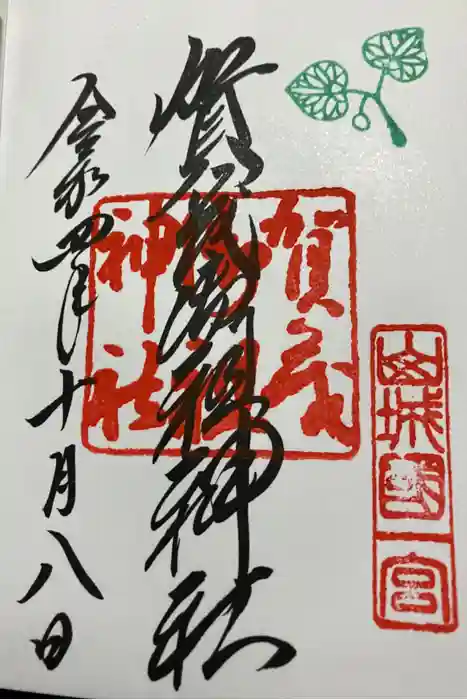 山城國一宮
賀茂御祖神社
賀茂御祖神社
令和四年十月八日